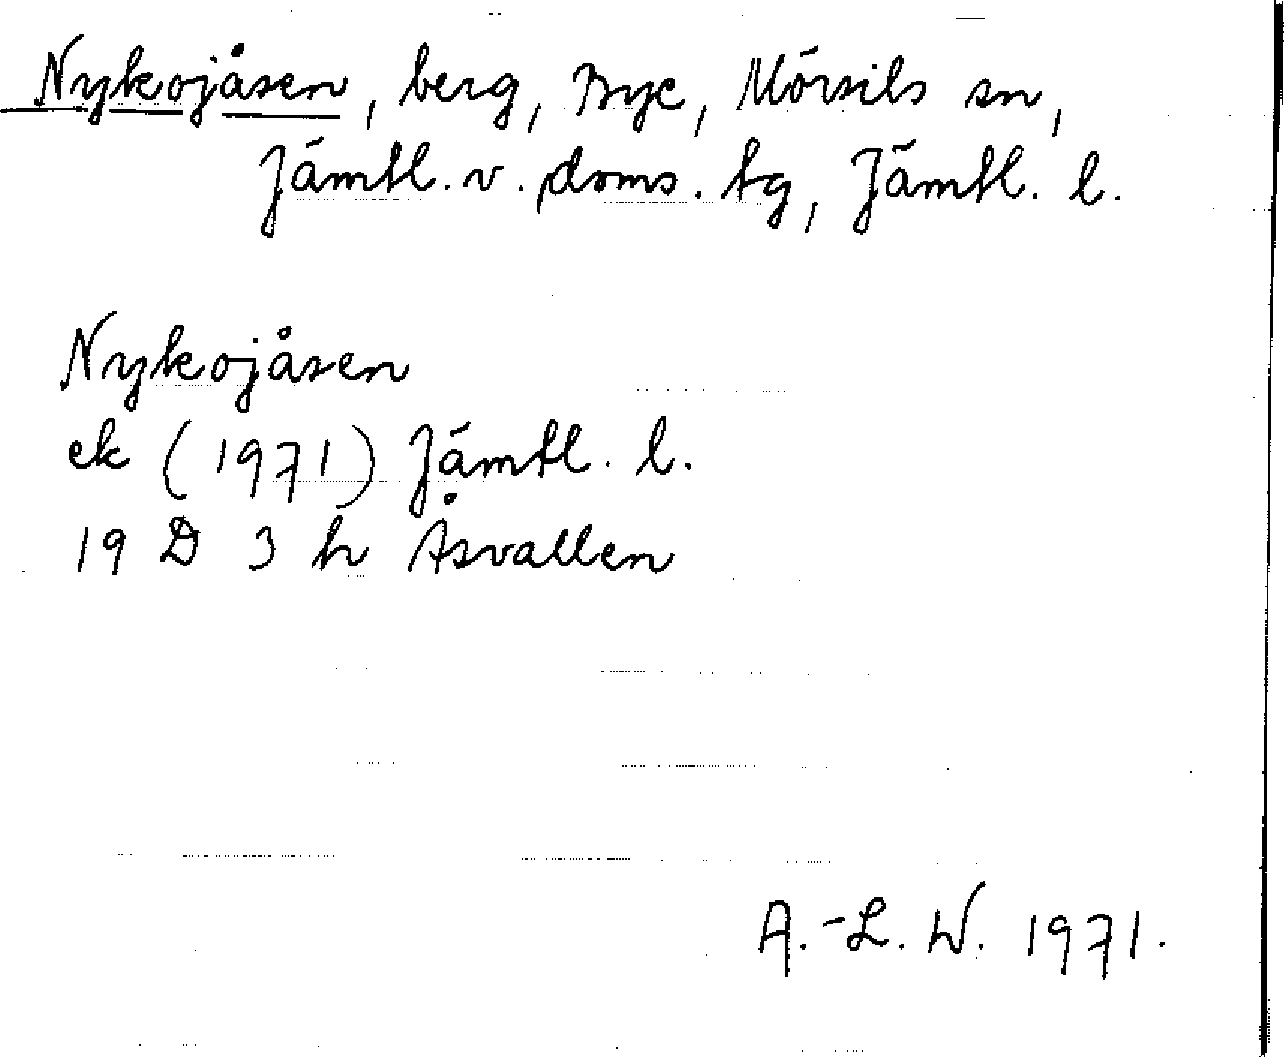 Nykojåsen, berg, Bye, Mörsils sn,
Jämtl. v. doms. tg, Jämtl. l.
Nykojåsen
ek (1971) Jämtl. l.
19 D 3 h Åsvallen
A.-L. W. 1971.